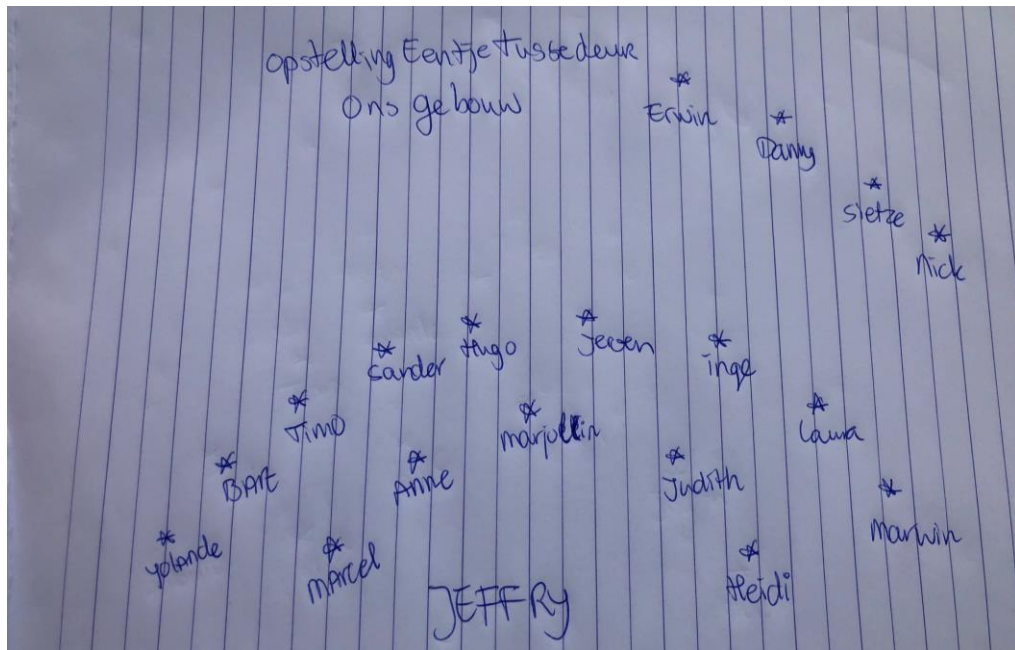 Opstelling Eentje tussedeur
Ons gebouw
Erwin
Danny
Sietze
Nick
Sander
Hugo
Jeroen
inge
Timo
Marjollin
Laura
BART
Anne
Judith
Marwin
YOLANDE
MARCEL
Heidi
JEFFRY